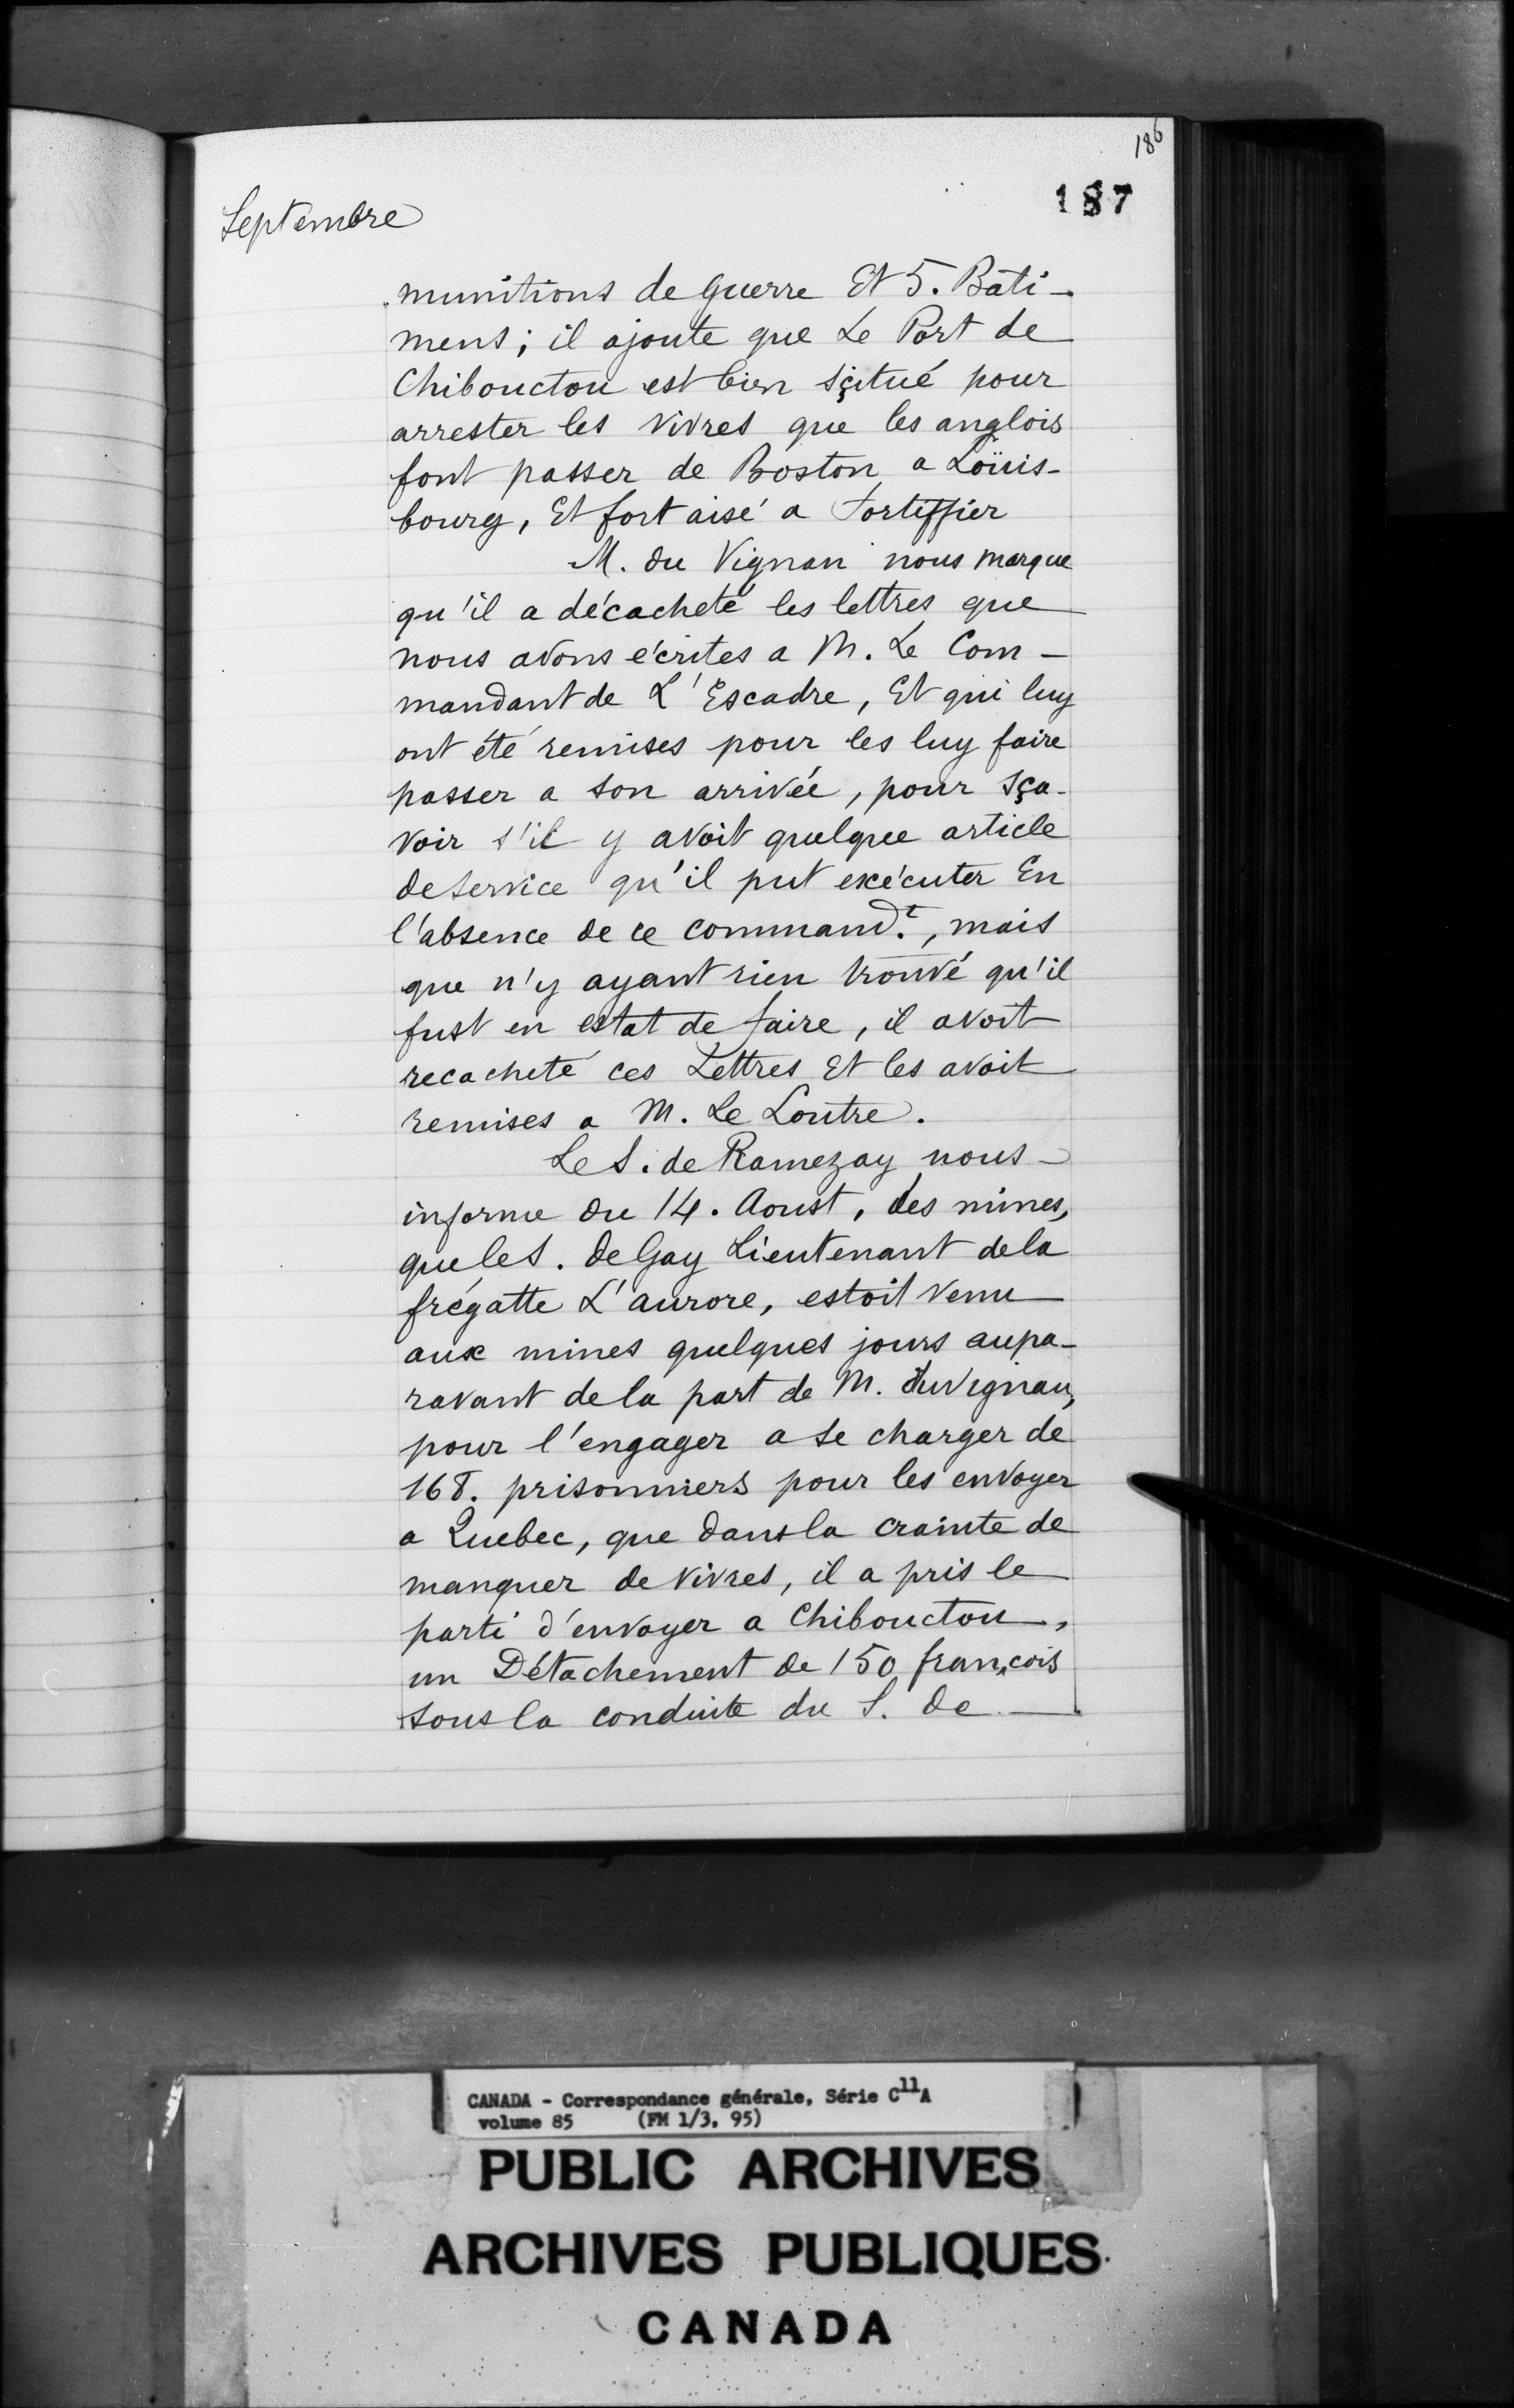 186
187
Septembre
munitions de guerre Et 5. Bati-
mens; il ajoute que Le Port de
Chibouctou est bien sçitué pour
arrester les vivres que les anglois
font passer de Boston a Loüis-
bourg, Et fort aisé a fortiffier
M. du Vignan nous marque
qu'il a décacheté les lettres que
nous avons écrites a M. Le Com-
mandant de L'Escadre, Et qui luy
ont été remises pour les luy faire
passer a son arrivée, pour sça-
voir s'il y avoit quelque article
de service qu'il put exécuter En
l'absence de ce commandt., mais
que n'y ayant rien trouvé qu'il
fust en estat de faire, il avoit
recacheté ces Lettres Et les avoit
remises a M. Le Loutre.
Le S. de Ramezay nous
informe du 14. Aoust, des mines,
que le S. de Gay Lieutenant de la
frégatte L'aurore, estoit venu
aux mines quelques jours aupa-
ravant de la part de M. duvignau,
pour l'engager a se charger de
168. prisonniers pour les envoyer
a Quebec, que dans la crainte de
manquer de vivres, il a pris le
parti d'envoyer a Chibouctou,
un Détachement de 150 françois
sous la conduite du S. de
CANADA - Correspondance générale, Série C11A
volume 85 (FM 1/3, 95)
PUBLIC ARCHIVES
ARCHIVES PUBLIQUES
CANADA